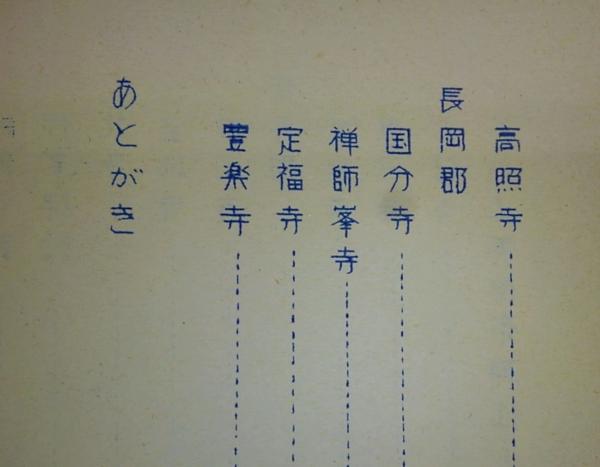 高照寺
長岡郡
国分寺
禅師峯寺
定福寺
豊楽寺
あとがき